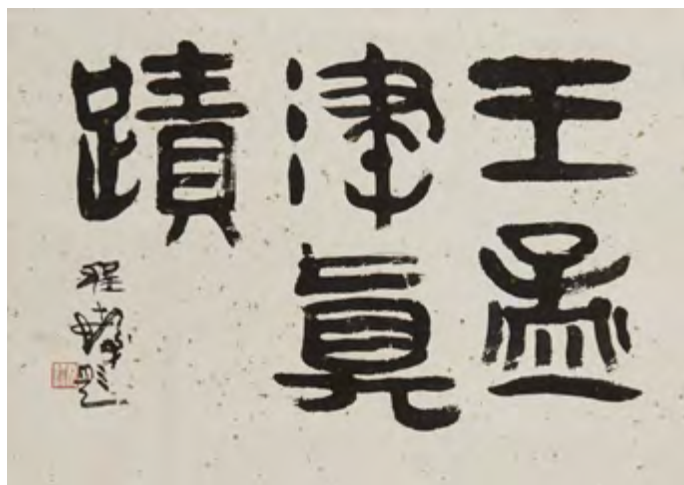 王孟
津真
蹟
程
題